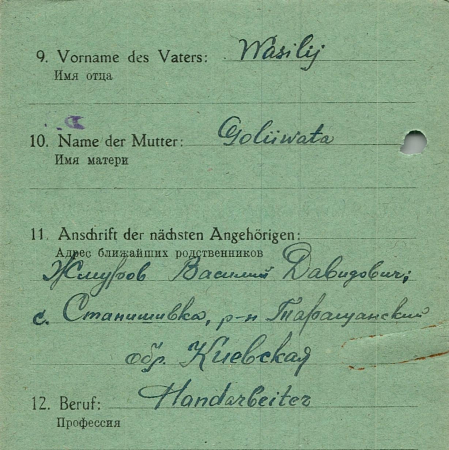 9. Vorname des Vaters: Wasilij
Имя отца
10. Name der Mutter: Goliwata
Имя матери
11. Anschrift der nächsten Angehörigen:
Адрес ближайших родственников
Жмуров Василий Давидович,
с. Станишивка, р-н Таращанский
обр. Киевская
12. Beruf: Handarbeiter
Профессия